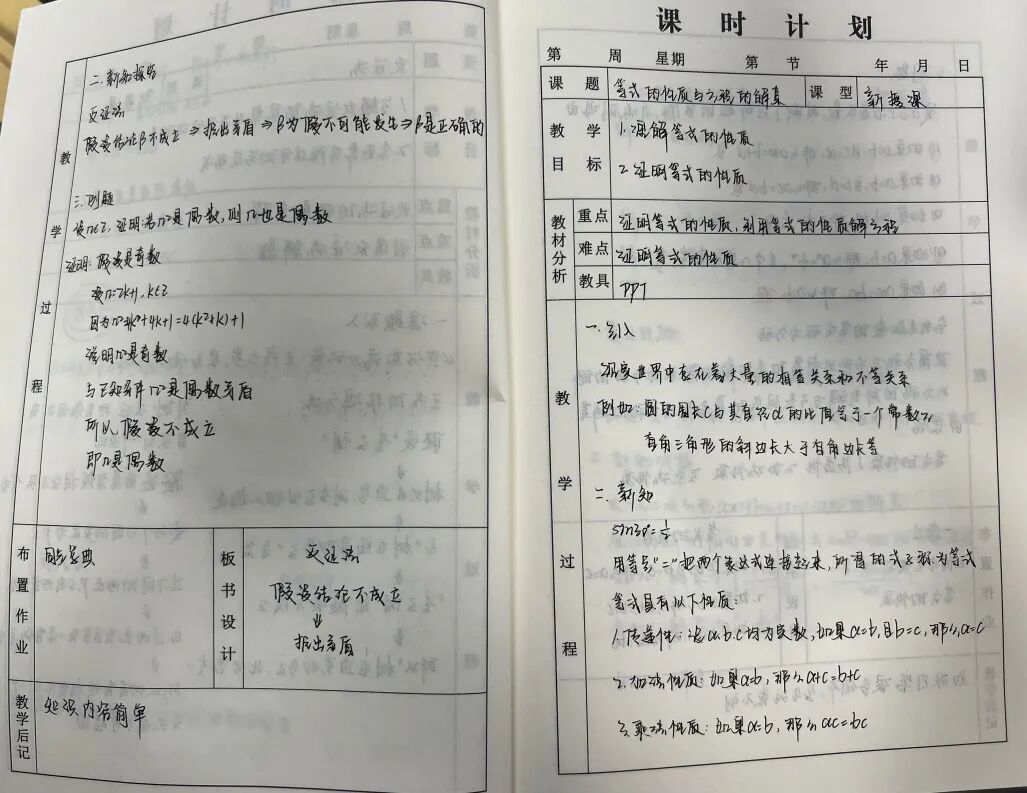 教学过程
二、新知探究
反证法
假设结论β不成立⇒推出矛盾⇒β为假不可能发生⇒β是正确的
三、例题
设n∈Z,证明:若n²是偶数,则n也是偶数
证明:假设n是奇数
设n=2k+1,k∈Z
因为n²=4k²+4k+1=4(k²+k)+1
说明n²是奇数
与已知条件n²是偶数矛盾
所以假设不成立
即n是偶数
布置作业
板书设计
反证法
假设结论不成立
↓
推出矛盾
教学后记
知识内容简单
课时计划
第 周 星期 第 节 年 月 日
课题 等式的性质与方程的解集 课型 新授课
教学目标
1.理解等式的性质
2.证明等式的性质
教材分析
重点 证明等式的性质,利用等式的性质解方程
难点 证明等式的性质
教具 PPT
教学过程
一、引入
现实世界中存在着大量的相等关系和不等关系
例如:圆的周长C与其直径d的比值等于一个常数π
直角三角形的斜边长大于直角边长等
二、新知
sin30°=1/2
用等号"="把两个表达式连接起来,所得的式子称为等式
等式具有以下性质:
1.传递性:设a.b.c均为实数,如果a=b,且b=c,那么a=c
2.加法性质:如果a=b,那么a+c=b+c
3.乘法性质:如果a=b,那么ac=bc